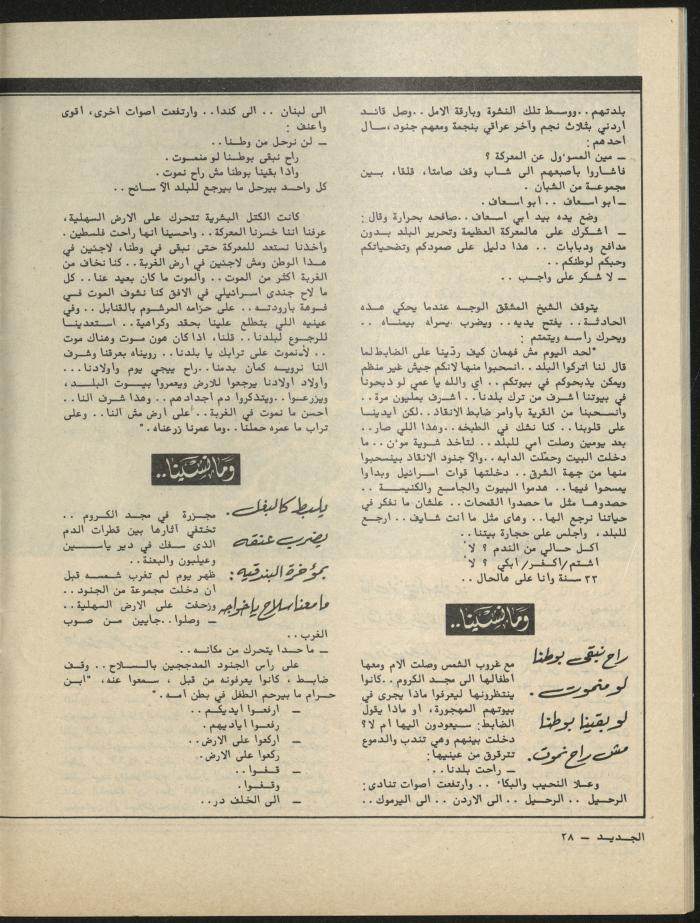 بلدتهم..ووسط تلك النشوة وبارقة الامل ..وصل قائد
اردني بثلاث نجم وآخر عراقي بنجمة ومعهم جنود،سأل
احدهم:
ـ مين المسوءول عن المعركة ؟
فاشاروا باصبعهم الى شاب وقف صامتا، قلقا، بين
مجموعة من الشبان .
ـ ابو اسعاف .. ابو اسعاف.
وضع يده بيد ابي اسعاف..صافحه بحرارة وقال:
ـ اشكرك على هالمعركة العظيمة وتحرير البلد بدون
مدافع ودبابات .. هذا دليل على صمودكم وتضحياتكم
وحبكم لوطنكم ..
ـ لا شكر على واجب ..
يتوقف الشيخ المشقق الوجه عندما يحكي هذه
الحادثة.. يفتح يديه.. ويضرب يسراه بيمناه ..
ويحرك رأسه ويتمتم :
"لحد اليوم مش فهمان كيف ردّينا على الضابط لما
قال لنا اتركوا البلد ..انسحبوا منها لانكم جيش غير منظم
ويمكن يذبحوكم في بيوتكم .. اي والله يا عمي لو ذبحونا
في بيوتنا اشرف من ترك بلدنا.. اشرف بمليون مرة..
وانسحبنا من القرية باوامر ضابط الانقاذ..لكن ايدينا
على قلوبنا.. كنا نشك في الطبخه ..وهذا اللي صار..
بعد يومين وصلت امي للبلد.. لتاخذ شوية موءن.. ما
دخلت البيت وحمّلت الدابه..والاّ جنود الانقاذ بينسحبوا
منها من جهة الشرق.. دخلتها قوات اسرائيل وبداوا
يمسحوا فيها.. هدموا البيوت والجامع والكنيسة ..
حصدوها مثل ما حصدوا القمحات .. علشان ما نفكر في
حياتنا نرجع الها.. وهاى مثل ما انت شايف.. ارجع
للبلد، واجلس على حجارة بيتنا..
اكل حالي من الندم ؟ لا
اشتم/اكفر/ابكي ؟ لا
٣٣ سنة وانا على هالحال..
وما نسينا..
راح نبقى بوطنا
لو منموت.
لو بقينا بوطنا
مش راح نموت.
مع غروب الشمس وصلت الام ومعها
اطفالها الى مجد الكروم ..كانوا
ينتظرونها ليعرفوا ماذا يجرى في
بيوتهم المهجورة، او ماذا يقول
الضابط: سيعودون اليها ام لا؟
دخلت بينهم وهي تندب والدموع
تترقرق من عينيها:
ـ راحت بلدنا..
وعلا النحيب والبكاء .. وارتفعت اصوات تنادي:
الرحيل .. الرحيل .. الى الاردن .. الى اليرموك..
الى لبنان .. الى كندا.. وارتفعت اصوات اخرى، اقوى
واعنف :
ـ لن نرحل من وطنا..
راح نبقى بوطنا لو منموت.
واذا بقينا بوطنا مش راح نموت.
كل واحد بيرحل ما بيرجع للبلد الاّ سائح..
كانت الكتل البشرية تتحرك على الارض السهلية،
عرفنا اننا خسرنا المعركة.. واحسينا انها راحت فلسطين.
واخذنا نستعد للمعركة حتى نبقى في وطنا، لاجئين في
هذا الوطن ومش لاجئين في ارض الغربة.. كنا نخاف من
الغربة اكثر من الموت.. والموت ما كان بعيد عنا.. كل
ما لاح جندى اسرائيلي في الافق كنا نشوف الموت في
فوهة بارودته.. على حزامه المرشوم بالقنابل.. وفي
عينيه اللي بتطلع علينا بحقد وكراهية.. استعدينا
للرجوع لبلدنا.. قلنا، اذا كان هون موت وهناك موت
.. لانموت على ترابك يا بلدنا.. رويناه بعرقنا وشرف
النا نرويه كمان بدمنا..راح ييجي يوم واولادنا...
واولاد اولادنا يرجعوا للارض ويعمروا بيوت البلد،
ويزرعوا..ويتذكروا دم اجدادهم.. وهذا شرف النا..
احسن ما نموت في الغربة.. على ارض مش النا.. وعلى
تراب ما عمره حملنا..وما عمرنا زرعناه."
وما نسينا..
يلبط كالبغل.
يضرب عنقه
بمؤخرة البندقيه:
ما معنا سلاح يا خواجه
مجزرة في مجد الكروم ..
تختفي آثارها بين قطرات الدم
الذى سفك في دير ياسين
وعيلبون والبعنة..
ظهر يوم لم تغرب شمسه قبل
ان دخلت مجموعة من الجنود..
وزحفت على الارض السهلية..
ـ وصلوا..جايين من صوب
الغرب..
ـ ما حدا يتحرك من مكانه..
على رأس الجنود المدججين بالسلاح.. وقف
ضابط، كانوا يعرفونه من قبل، سمعوا عنه، "ابن
حرام ما بيرحم الطفل في بطن امه."
ـ ارفعوا ايديكم..
رفعوا اياديهم.
ـ اركعوا على الارض..
ركعوا على الارض.
ـ قفوا..
وقفوا.
ـ الى الخلف در..
الجديد ـ ٢٨